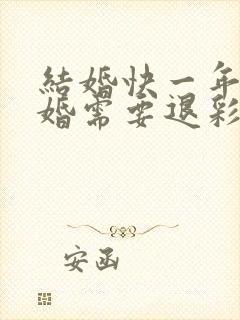 結婚快一年
婚需要退彩
安函